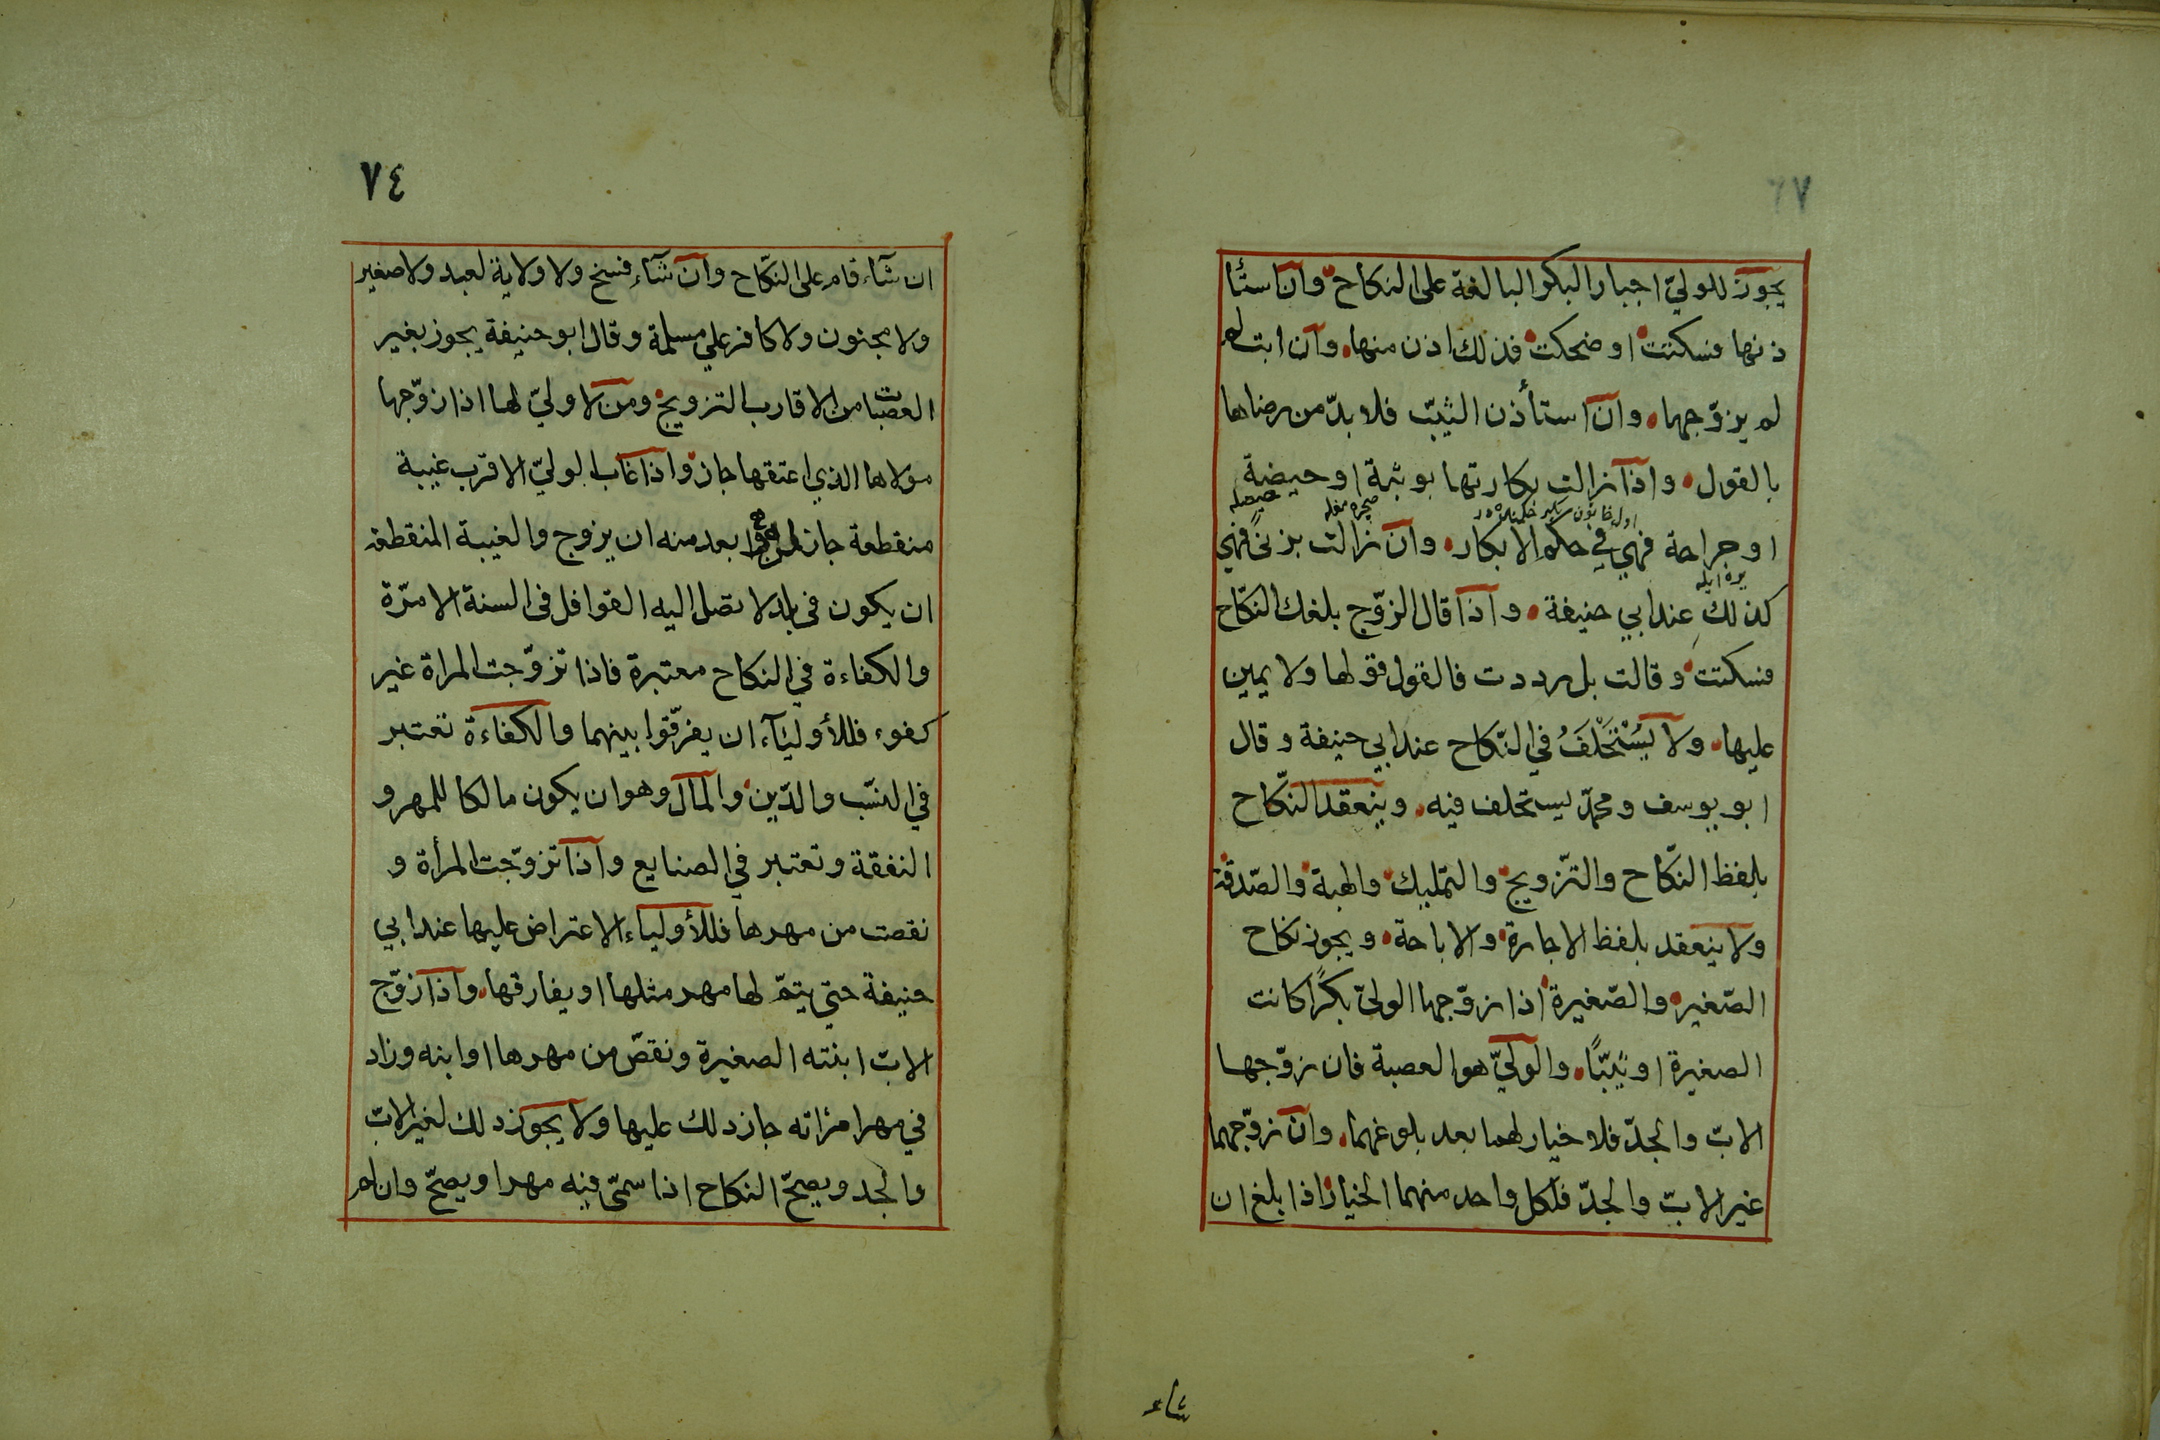 يجوز للوليّ اجبار البكر البالغة على النكاح وان استأ
ذنها فسكتت او ضحكت فذلك اذن منها وان ابت لم
لم يزوّجها وان استأذن الثيّب فلا بدّ من رضاها
بالقول واذا زالت بكارتها بوثبة او حيضة
او جراحة فهي في حكم الابكار وان زالت بزنًى فهي
كذلك عند ابي حنيفة واذا قال الزوّج بلغك النكّاح
فسكتت وقالت بل رددت فالقول قولها ولا يمين
عليها ولا يَسْتَحْلَفُ في النّكاح عند ابي حنيفة وقال
ابو يوسف ومحمّد يستحلف فيه وينعقد النكّاح
بلفظ النكّاح والتّزويج والتمليك والهبة والصّدقة
ولا ينعقد بلفظ الاجارة والاباحة ويجوز نكاح
الصّغير والصّغيرة اذا زوّجها الوليّ بكرًا كانت
الصغيرة او ثيّبًا والوليّ هو العصبة فان زوّجها
الابّ والجدّ فلا خيار لهما بعد بلوغهما وان زوّجهما
غير الابّ والجدّ فلكل واحد منهما الخيار اذا بلغ ان
شاء
٧٤
ان شآء قام على النكّاح وان شآء فسخ ولا ولاية لعبد ولا صغير
ولا مجنون ولا كافر علي مسلمة وقال ابو حنيفة يجوز بغير
العصبات من الاقارب التزويج ومن لا وليّ لها اذا زوّجها
مولاها الذي اعتقها جاز واذا غاب الوليّ الاقرب غيبة
منقطعة جاز لمن هو ابعد منه ان يزوج والغيبة المنقطعة
ان يكون في بلد لا تصل اليه القوافل في السنة الا مرّة
والكفاءة في النكاح معتبرة فاذا تزوّجت المراة غير
كفوء فللأوليآء ان يفرّقوا بينهما والكفاءة تعتبر
في النسّب والدّين والمال وهو ان يكون مالكا للمهر و
النفقة وتعتبر في الصنايع واذا تزوّجت المرأة و
نقصت من مهرها فللأولياء الاعتراض عليها عند ابي
حنيفة حتي يتمّ لها مهر مثلها او يفارقها واذا زوّج
الابّ ابنته الصغيرة ونقصّ من مهرها او ابنه وزاد
في مهر امرأته جاز ذلك عليها ولا يجوز ذلك لغير الابّ
والجد ويصحّ النكاح اذا سمّي فيه مهرا ويصحّ وان لم